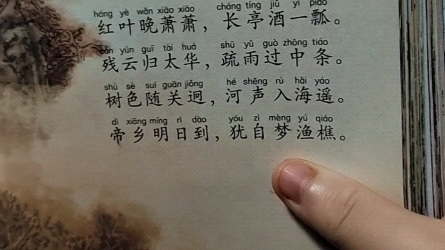 hóng yè wǎn xiāo xiāo cháng tíng jiǔ yì piáo
红叶晚萧萧，长亭酒一瓢。
cán yún guī tài huá shū yǔ guò zhōng tiáo
残云归太华，疏雨过中条。
shù sè suí guān jiǒng hé shēng rù hǎi yáo
树色随关迥，河声入海遥。
dì xiāng míng rì dào yóu zì mèng yú qiáo
帝乡明日到，犹自梦渔樵。